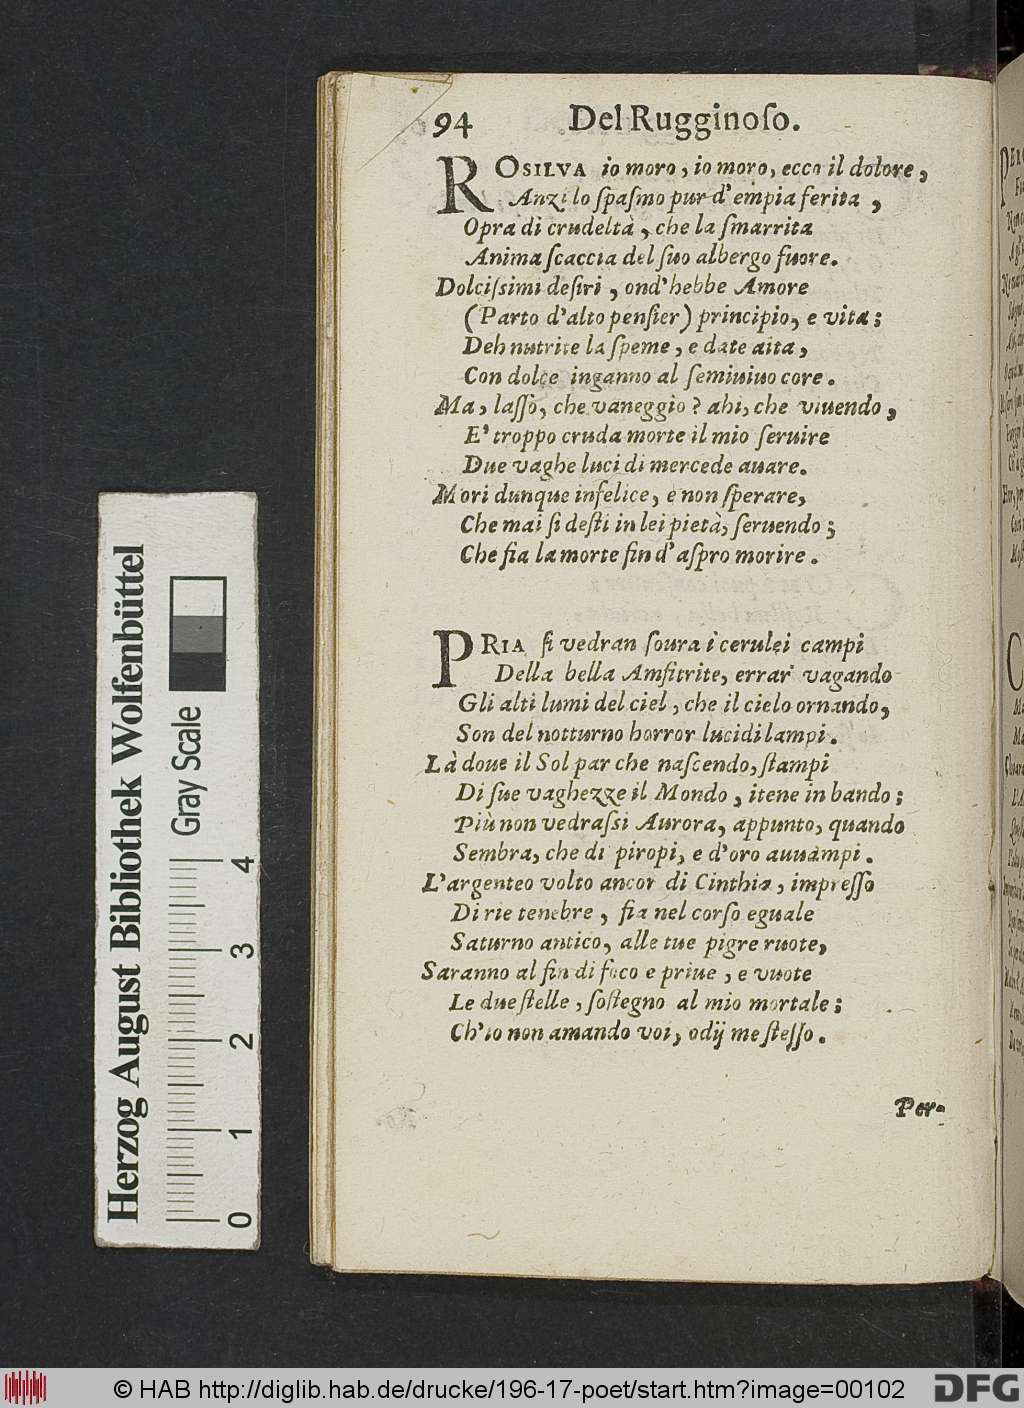 94 Del Rugginoſo.
ROSILVA io moro, io moro, ecco il dolore,
Anzi lo ſpaſmo pur d'empia ferita,
Opra di crudeltà, che la ſmarrita
Anima ſcaccia del ſuo albergo fuore.
Dolciſsimi deſiri, ond'hebbe Amore
(Parto d'alto penſier) principio, e vita;
Deh nutrite la ſpeme, e date aita,
Con dolce inganno al ſemiuiuo core.
Ma, laſſo, che vaneggio? ahi, che viuendo,
E' troppo cruda morte il mio ſeruire
Due vaghe luci di mercede auare.
Mori dunque infelice, e non ſperare,
Che mai ſi deſti in lei pietà, ſeruendo;
Che fia la morte fin d'aſpro morire.
PRIA ſi vedran ſoura i cerulei campi
Della bella Amfitrite, errar vagando
Gli alti lumi del ciel, che il cielo ornando,
Son del notturno horror lucidi lampi.
Là doue il Sol par che naſcendo, ſtampi
Di ſue vaghezze il Mondo, itene in bando;
Più non vedraſsi Aurora, appunto, quando
Sembra, che di piropi, e d'oro auuampi.
L'argenteo volto ancor di Cinthia, impreſſo
Di rie tenebre, fia nel corſo eguale
Saturno antico, alle tue pigre ruote,
Saranno al fin di foco e priue, e vuote
Le due ſtelle, ſoſtegno al mio mortale;
Ch'io non amando voi, odij me ſteſſo.
Per-
Herzog August Bibliothek Wolfenbüttel
Gray Scale
0 1 2 3 4
© HAB http://diglib.hab.de/drucke/196-17-poet/start.htm?image=00102
DFG